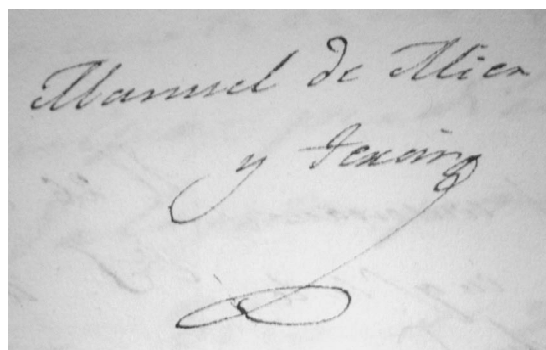 Manuel de Mier
y Teran